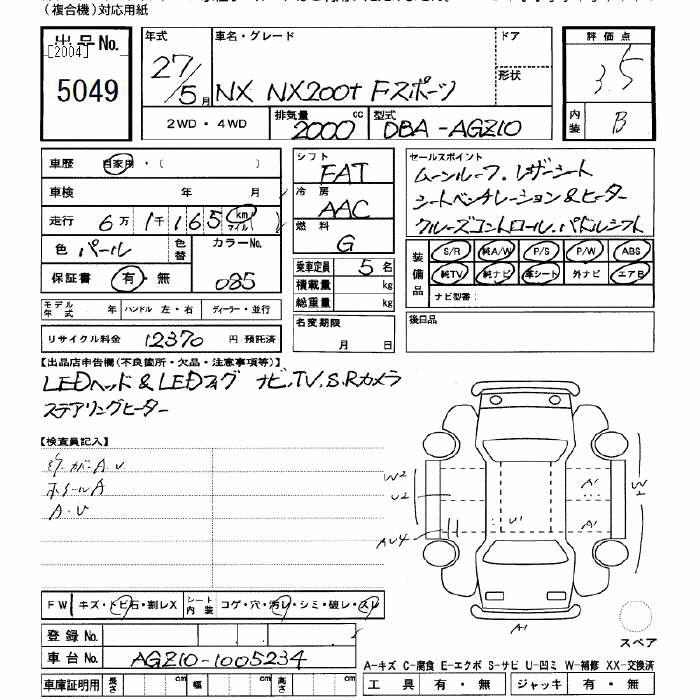 （複合機）対応用紙
出品No.
[2004]
5049
年式
27/5月
車名・グレード
NX NX200t Fスポーツ
ドア
形状
2WD・4WD
排気量
2000
cc
型式
DBA-AGZ10
評価点
3.5
内装
B
車歴 自家用・（ ）
車検 年 月
走行 6万1千165 km マイル
色 パール
色替
カラーNo.
085
保証書 有・無
モデル年式 年 ハンドル 左・右 ディーラー・並行
リサイクル料金 12370 円 預託済
シフト
FAT
冷房
AAC
燃料
G
乗車定員 5名
積載量 kg
総重量 kg
名変期限
月 日
セールスポイント
ムーンルーフ、レザーシート
シートベンチレーション&ヒーター
クルーズコントロール、パドルシフト
装備品
S/R 純A/W P/S P/W ABS
純TV 純ナビ 革シート 外ナビ エアB
ナビ型番：
後日品
【出品店申告欄（不良箇所・欠品・注意事項等）】
LEDヘッド&LEDフォグ ナビ、TV、S、Rカメラ
ステアリングヒーター
【検査員記入】
A.U
ホイールA
A.U
W2
U2
AU4
U1
A1
A1
W1
A1
FW キズ・トビ石・割レX
シート内装 コゲ・穴・汚レ・シミ・破レ・スレ
登録No.
車台No. AGZ10-1005234
車庫証明用 長さ cm 幅 cm 高さ cm
スペア
A-キズ C-腐食 E-エクボ S-サビ U-凹ミ W-補修 XX-交換済
工具 有・無 ジャッキ 有・無